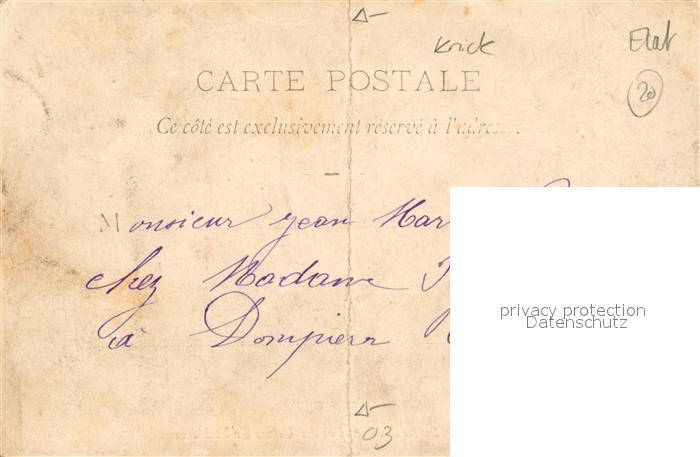 Knick Etat
20
CARTE POSTALE
Ce côté est exclusivement réservé à l'adresse.
Monsieur Jean Mar
chez Madame
à Dompierr
privacy protection
Datenschutz
03